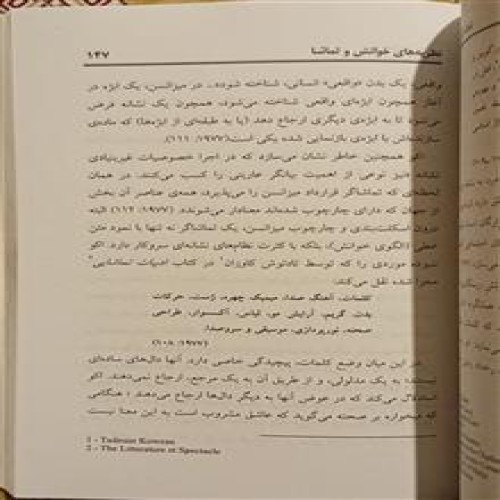 نظریه‌های خوانش و تماشا ۱۴۷
واقعی، یک بدن «واقعی» انسانی، شناخته شود... در میزانسن، یک ابژه در
آغاز همچون ابژه‌ای واقعی شناخته می‌شود، همچون یک نشانه فرض
می‌شود تا به ابژه‌ی دیگری ارجاع دهد (یا به طبقه‌ای از ابژه‌ها) که ماده‌ی
سازنده‌اش با ابژه‌ی بازنمایی شده یکی است(۱۹۷۷: ۱۱۱).
اکو همچنین خاطر نشان می‌سازد که در اجرا خصوصیات غیربنیادی
نشانه نیز نوعی از اهمیت بیانگر عاریتی را کسب می‌کنند. در همان
لحظه‌ای که تماشاگر قرارداد میزانسن را می‌پذیرد، همه‌ی عناصر آن بخش
از جهان که دارای چارچوب شده‌اند معنادار می‌شوند. (۱۹۷۷: ۱۱۲) البته
درون چارچوب میزانسن، یک تماشاگر نه تنها با نمود متن
خطی (الگوی خوانش)، بلکه با کثرت نظام‌های نشانه‌ای سروکار دارد. اکو
موردی را که توسط تادئوش کاوزان¹ در کتاب ادبیات نمایشی²
شده نقل می‌کند:
کلمات، آهنگ صدا، میمیک چهره، ژست، حرکات
بدن، گریم، آرایش مو، لباس، آکسسوار، طراحی
صحنه، نورپردازی، موسیقی و سروصدا.
(۱۹۷۷: ۱۰۸)
در این میان وضع کلمات، پیچیدگی خاصی دارد. آنها دال‌های ساده‌ای
نیستند؛ به یک مدلولی، و از طریق آن به یک مرجع، ارجاع نمی‌دهند. اکو
استدلال می‌کند که در عوض آنها به دیگر دال‌ها ارجاع می‌دهند؛ هنگامی
که میخواره بر صحنه می‌گوید که عاشق مشروب است به این معنا نیست
1 - Tadeusz Kowzan
2 - The Literature of Spectacle